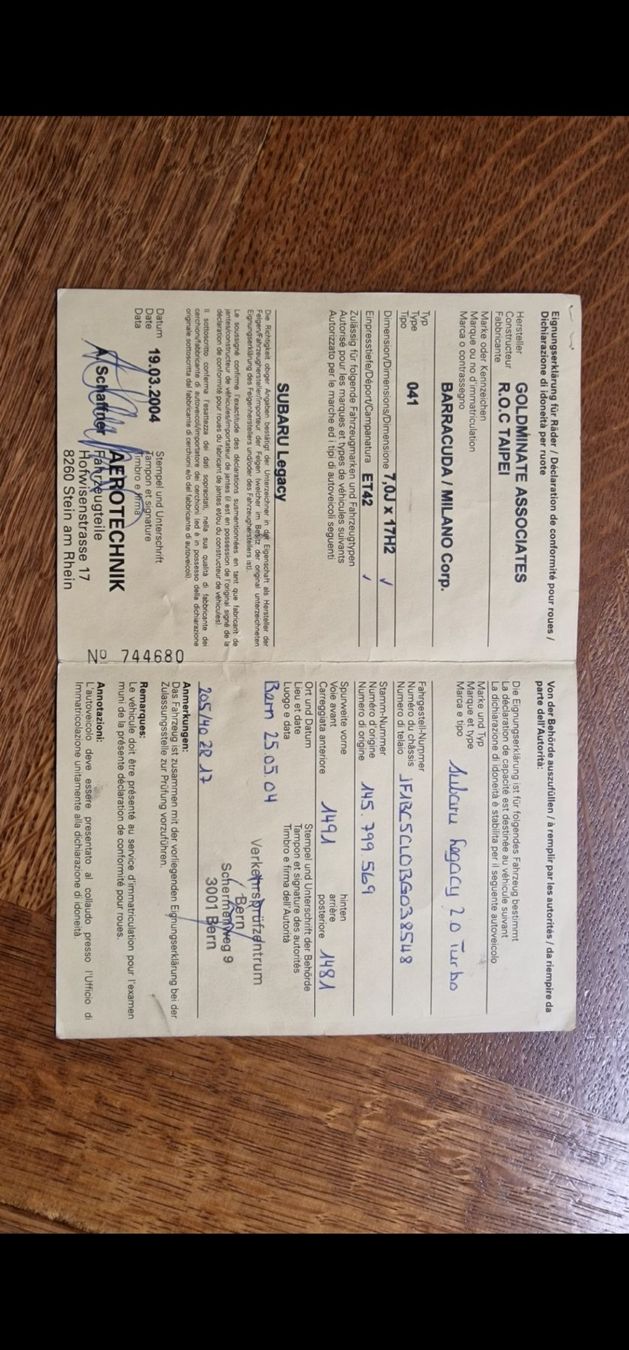 Eignungserklärung für Räder / Déclaration de conformité pour roues /
Dichiarazione di idoneità per ruote
Hersteller
Constructeur
Fabbricante
GOLDMINATE ASSOCIATES
R.O.C TAIPEI
Marke oder Kennzeichen
Marque ou no d'immatriculation
Marca o contrassegno
BARRACUDA / MILANO Corp.
Typ
Type
Tipo
041
Dimension/Dimensions/Dimensione 7,0J x 17H2 ✓
Einpresstiefe/Déport/Campanatura ET42 ✓
Zulässig für folgende Fahrzeugmarken und Fahrzeugtypen
Autorisé pour les marques et types de véhicules suivants
Autorizzato per le marche ed i tipi di autoveicoli seguenti
SUBARU Legacy
Die Richtigkeit obiger Angaben bestätigt der Unterzeichner in der Eigenschaft als Hersteller der
Felgen/Fahrzeughersteller/Importeur der Felgen (welcher im Besitz der original unterzeichneten
Eignungserklärung des Felgenherstellers und/oder des Fahrzeugherstellers ist).
Le soussigné confirme l'exactitude des déclarations susmentionnées en tant que fabricant de
jantes/constructeur de véhicules/importateur de jantes (il est en possession de l'original signé de la
déclaration de conformité pour roues du fabricant de jantes et/ou du constructeur de véhicules).
Il sottoscritto conferma l'esattezza dei dati sopraccitati, nella sua qualità di fabbricante dei
cerchioni/fabbricante di autoveicoli/importatore dei cerchioni (ed è in possesso della dichiarazione
originale sottoscritta dal fabbricante di cerchioni e/o del fabbricante di autoveicolo.
Datum
Date
Data
19.03.2004
Stempel und Unterschrift
Tampon et signature
Timbro e firma
A. Schaffner
AEROTECHNIK
Fahrzeugteile
Hofwisenstrasse 17
8260 Stein am Rhein
Nº 744680
Von der Behörde auszufüllen / à remplir par les autorités / da riempire da
parte dell'Autorità:
Die Eignungserklärung ist für folgendes Fahrzeug bestimmt
La déclaration de capacité est destinée au véhicule suivant
La dichiarazione di idoneità è stabilita per il seguente autoveicolo
Marke und Typ
Marque et type
Marca e tipo
Subaru Legacy 2.0 Turbo
Fahrgestell-Nummer
Numéro du châssis
Numero di telaio
JF1BC5CLOBG038548
Stamm-Nummer
Numéro d'origine
Numero di origine
145.799.569
Spurweite vorne
Voie avant
Carreggiata anteriore
1491
hinten
arrière
posteriore
1481
Ort und Datum
Lieu et date
Luogo e data
Bern 25.05.04
Stempel und Unterschrift der Behörde
Tampon et signature des autorités
Timbro e firma dell'Autorità
Verkehrsprüfzentrum
Bern
Schermenweg 9
3001 Bern
205/40 ZR 17
Anmerkungen:
Das Fahrzeug ist zusammen mit der vorliegenden Eignungserklärung bei der
Zulassungsstelle zur Prüfung vorzuführen.
Remarques:
Le véhicule doit être présenté au service d'immatriculation pour l'examen
muni de la présente déclaration de conformité pour roues.
Annotazioni:
L'autoveicolo deve essere presentato al collaudo presso l'Ufficio di
immatricolazione unitamente alla dichiarazione di idoneità.